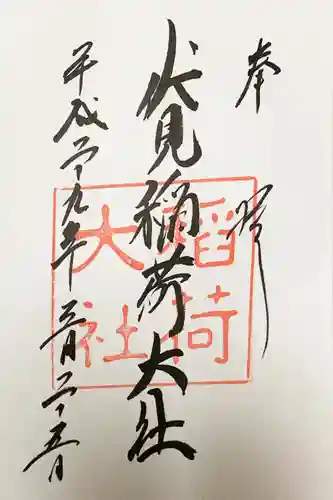 奉拝
伏見稲荷大社
平成二十九年三月二十五日
稲荷
大社